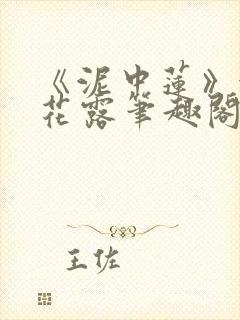 《泥中蓮》
花露筆趣閣
王佐